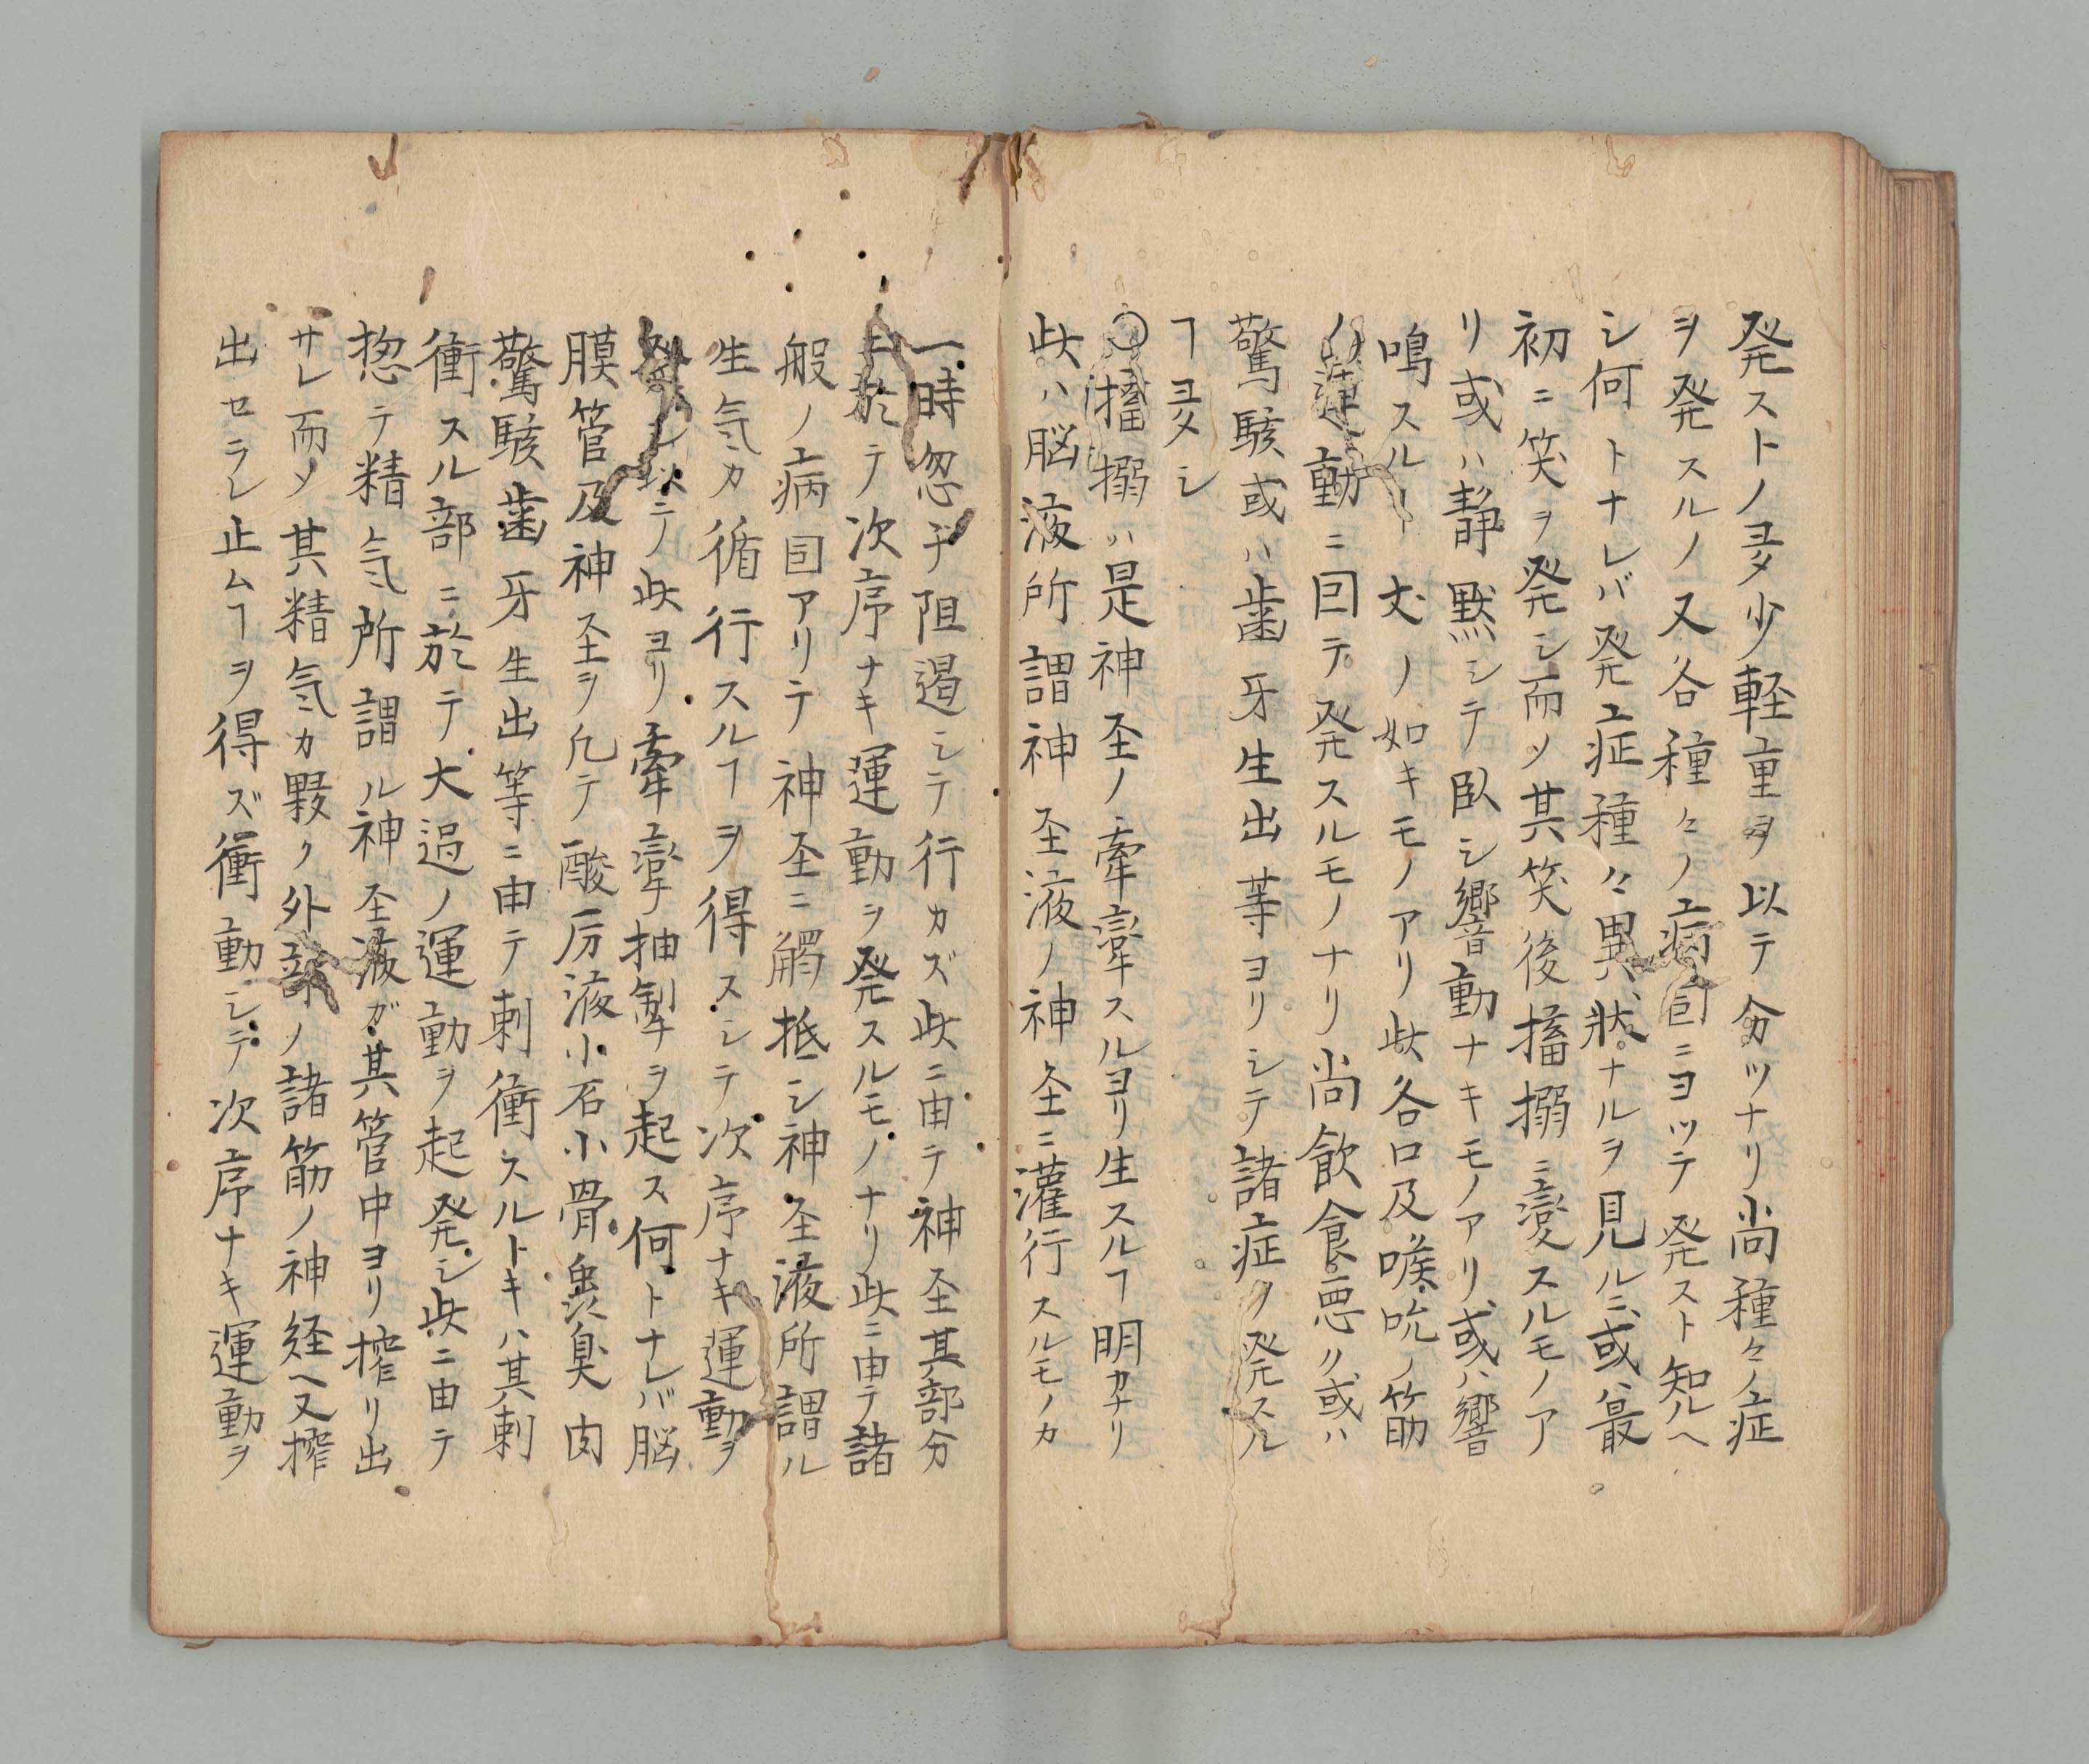 発ストノ多少軽重ヲ以テ分ツナリ尚種々ノ症
ヲ発スルノ又各種々ノ病因ニヨツテ発スト知ルヘ
シ何トナレバ発症種々異状ナルヲ見ルニ或ハ最
初ニ笑ヲ発シ而ソ其笑後搐搦ニ変スルモノア
リ或ハ静黙シテ臥シ響動ナキモノアリ或ハ響
鳴スルヿ犬ノ如キモノアリ此各口及喉吭ノ筋
ノ運動ニ因テ発スルモノナリ尚飲食悪ク或ハ
驚駭或ハ歯牙生出等ヨリシテ諸症ヲ発スル
ヿ多シ
〇搐搦ハ是神圣ノ牽攣スルヨリ生スルヿ明カナリ
此ハ脳液所謂神圣液ノ神圣ニ灌行スルモノカ
一時忽チ阻遏シテ行カズ此ニ由テ神圣其部分
ニ於テ次序ナキ運動ヲ発スルモノナリ此ニ由テ諸
般ノ病因アリテ神圣ニ觸抵シ神圣液所謂ル
生気カ循行スルヿヲ得スシテ次序ナキ運動ヲ
発シ以テ此ヨリ牽攣抽掣ヲ起ス何トナレバ脳
膜管及神圣ヲ凢テ酸厉液小石小骨蟲臭肉
驚駭歯牙生出等ニ由テ刺衝スルトキハ其刺
衝スル部ニ於テ大過ノ運動ヲ起発シ此ニ由テ
惣テ精気所謂ル神圣液ガ其管中ヨリ搾リ出
サレ而ソ其精気カ夥ク外部ノ諸筋ノ神経ヘ又搾
出セラレ止ムヿヲ得ズ衝動シテ次序ナキ運動ヲ